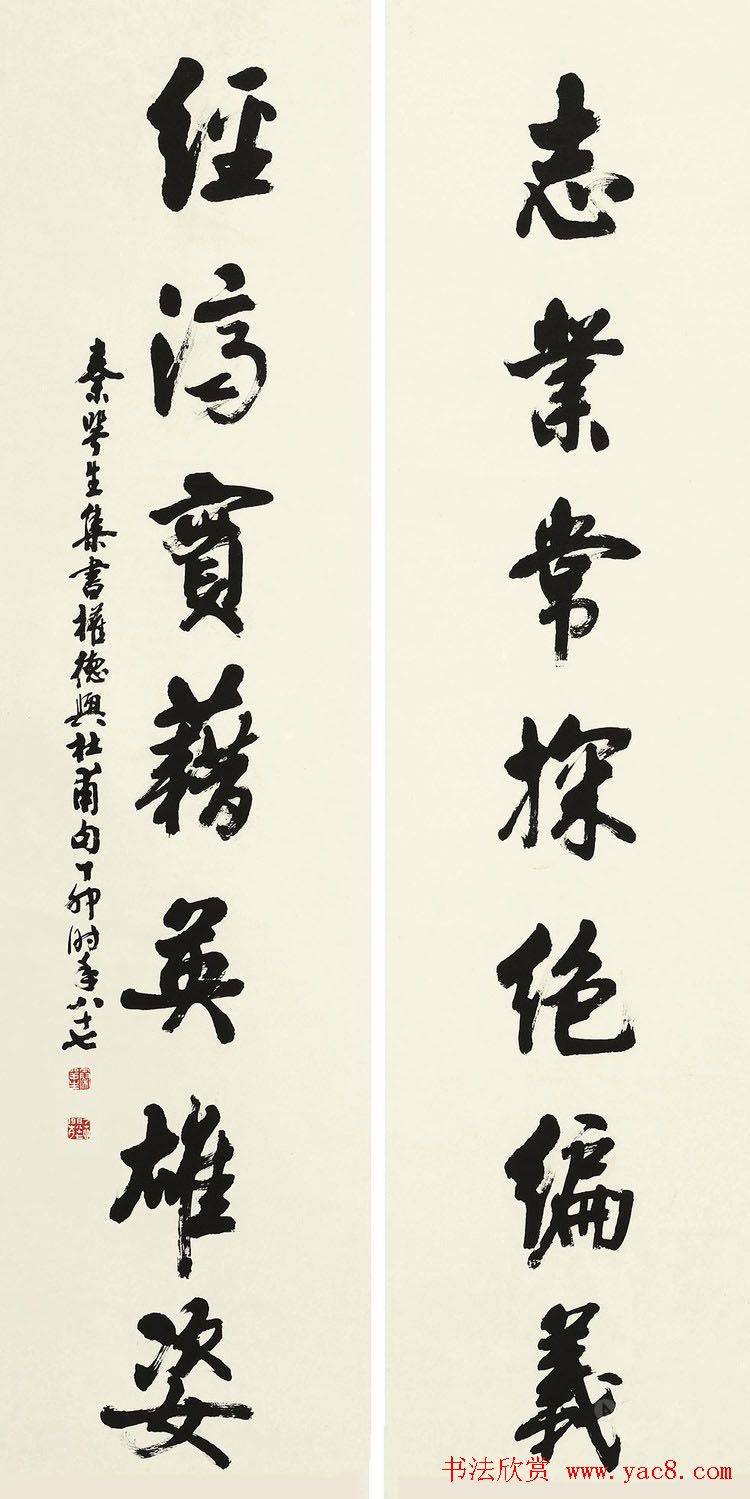 志業常探絶編義
經濟實藉英雄姿
秦咢生集書權德輿杜甫句丁卯時年八十七
书法欣赏 www.yac8.com